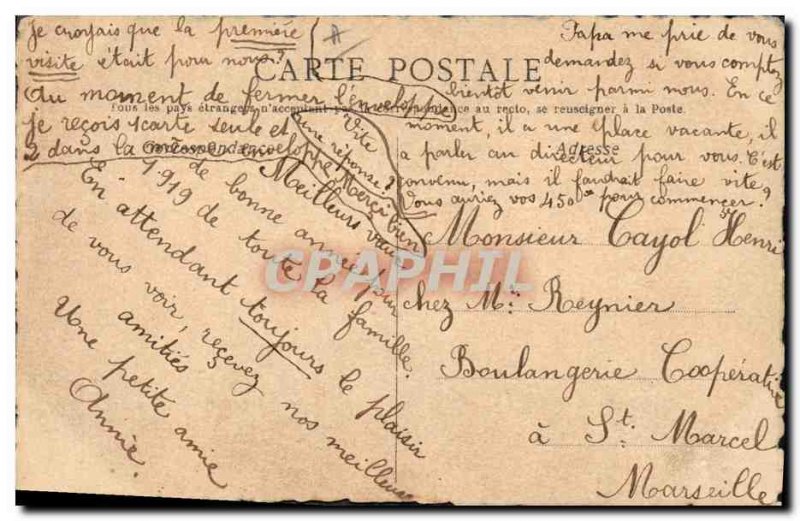 Je croyais que la première
visite était pour nous?
Au moment de fermer l'enveloppe
je reçois 1 carte seule et
2 dans la même enveloppe, Merci bien
Vite
une réponse?
Papa me prie de vous
demandez si vous comptez
bientôt venir parmi nous. En ce
moment, il a une place vacante, il
a parler au directeur pour vous. C'est
convenu, mais il faudrait faire vite?
Vous auriez vos 450 pour commencer.
CARTE POSTALE
Tous les pays étrangers n'acceptent pas la correspondance au recto, se renseigner à la Poste.
Correspondance
Adresse
Meilleurs vœux
de bonne année pour
1919 de toute la famille.
En attendant toujours le plaisir
de vous voir, recevez nos meilleures
amitiés
Une petite amie
Annie.
Monsieur Cayol Henri
chez Mr. Reynier
Boulangerie Coopérative
à St. Marcel
Marseille
CPAPHIL